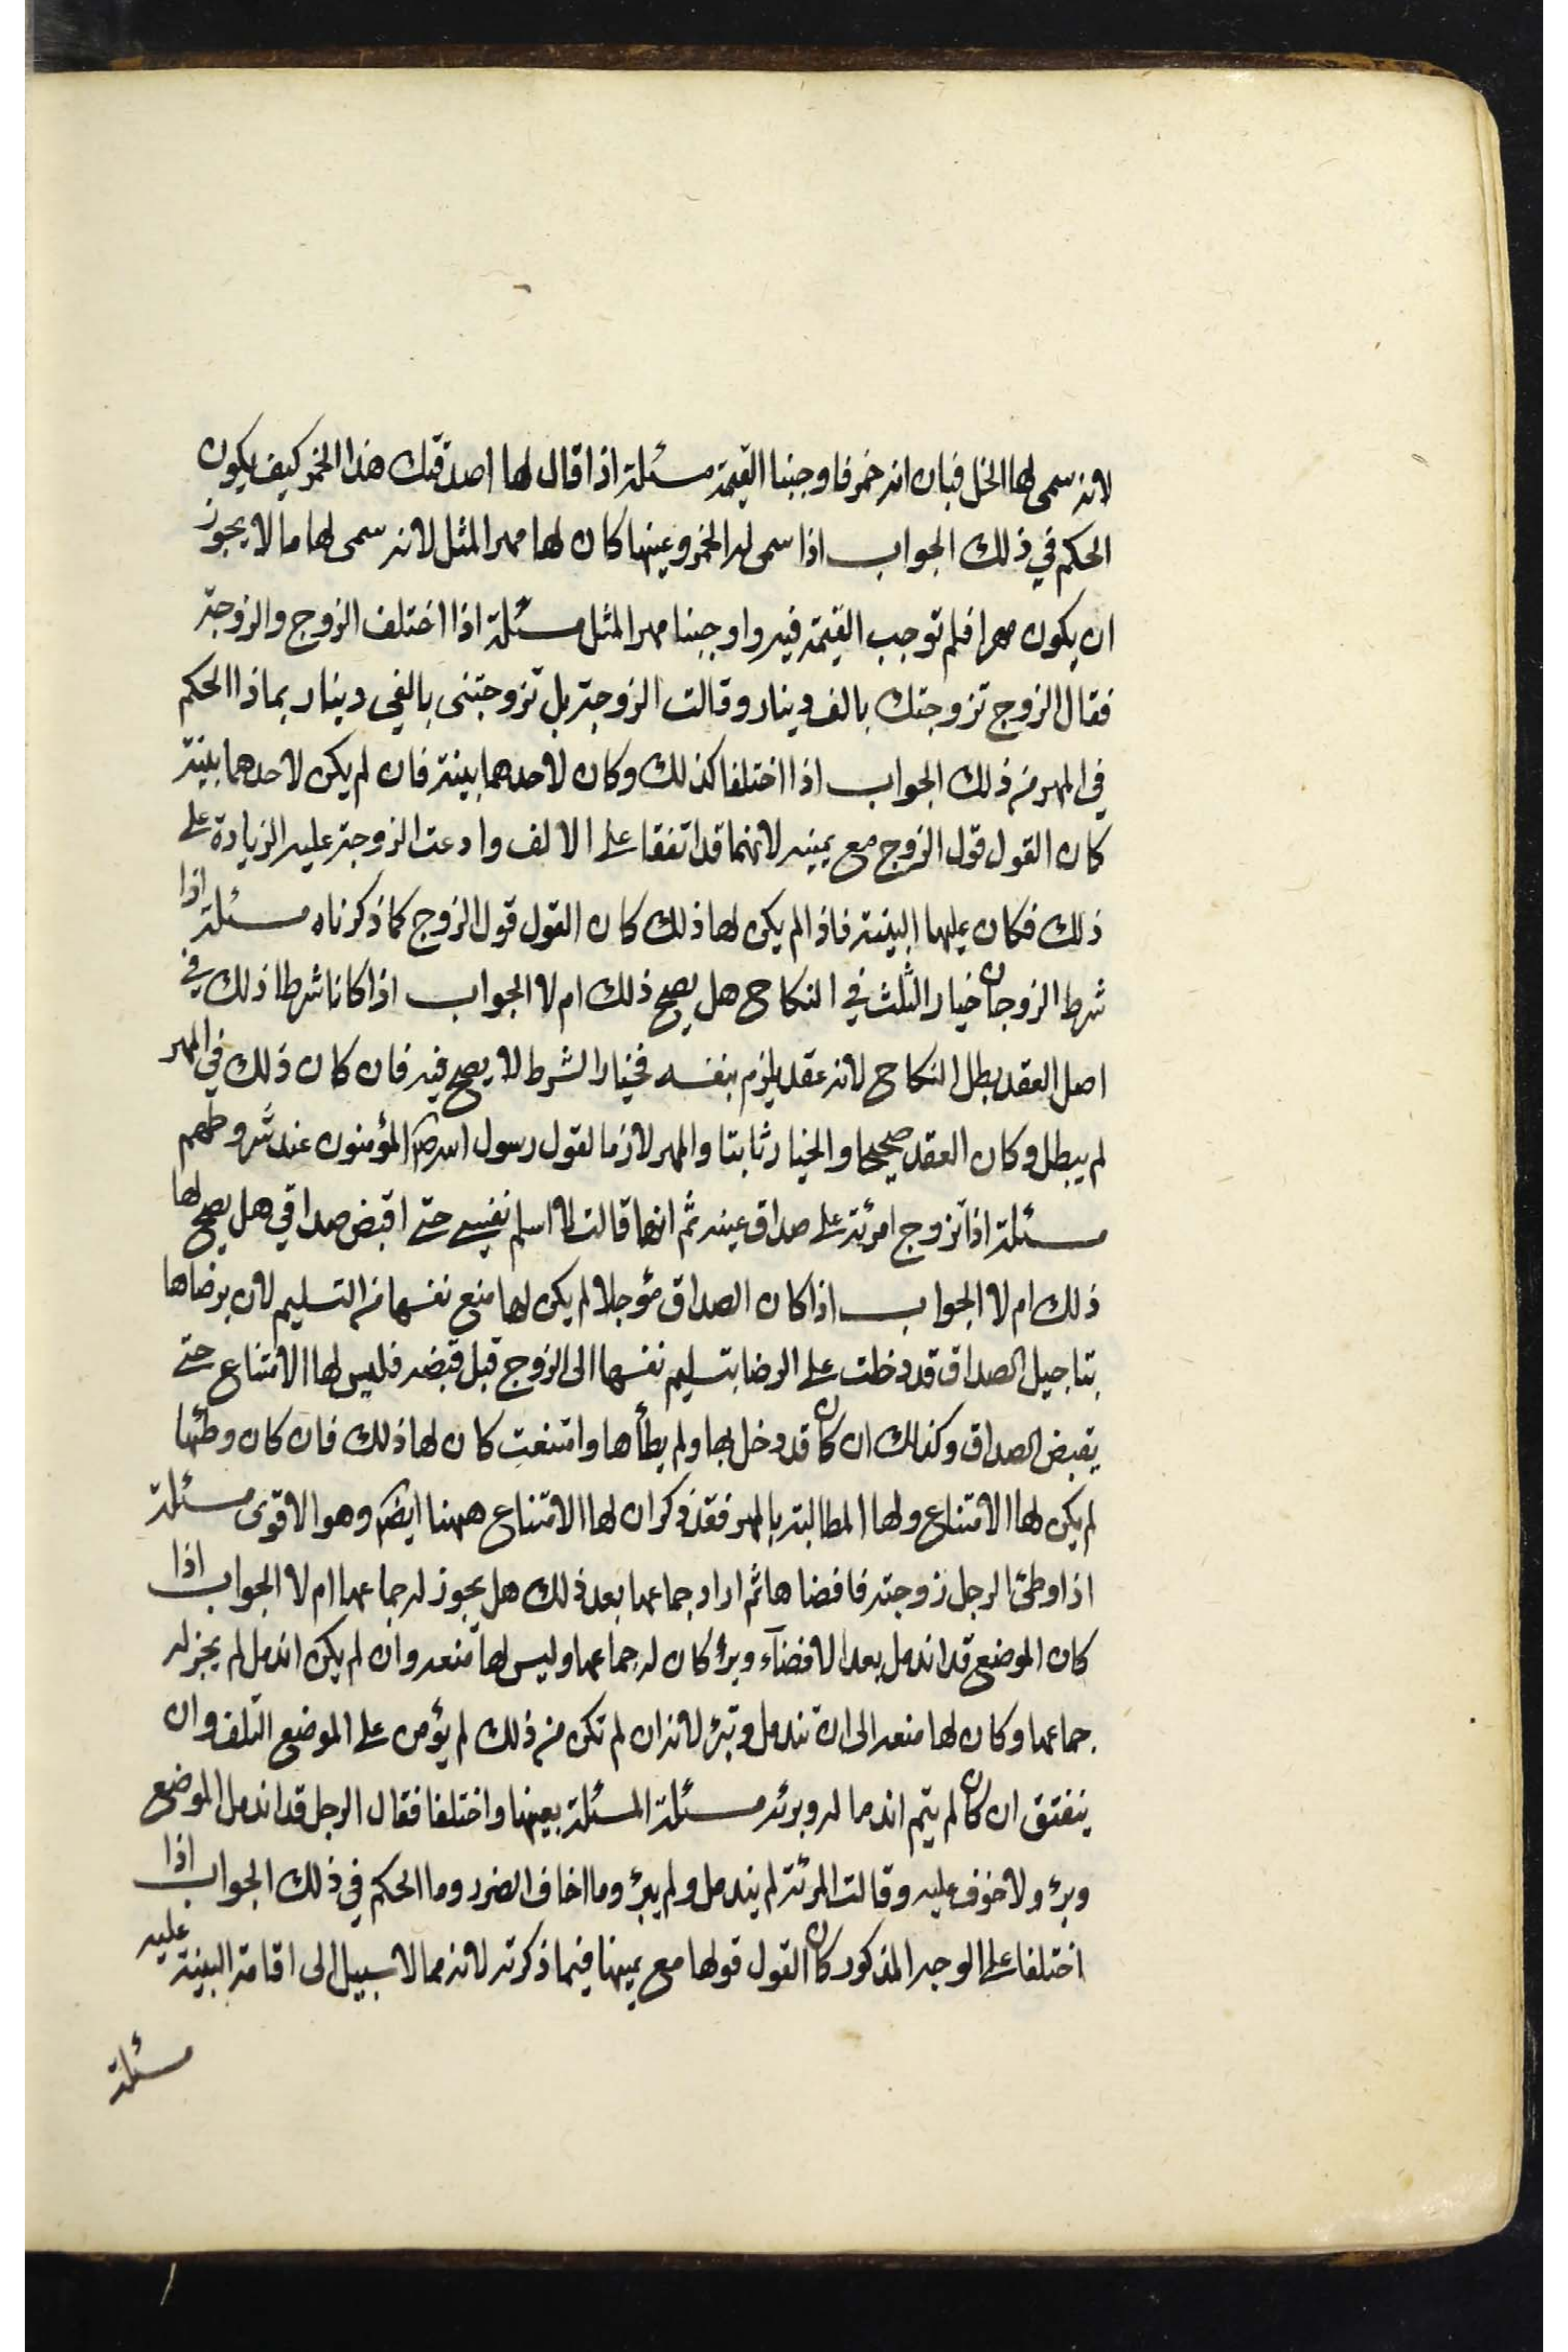 لانه سمى لها الخل فبان انه خمر فاوجبنا القيمة مسئلة اذا قال لها اصدقتك هذا الخمر كيف يكون
الحكم في ذلك الجواب اذا سمى له الخمر وعينها كان لها مهر المثل لانه سمى لها ما لا يجوز
ان يكون مهرا فلم توجب القيمة فيه واوجبنا مهر المثل مسئلة اذا اختلف الزوج والزوجة
فقال الزوج تزوجتك بالف دينار وقالت الزوجة بل تزوجتنى بالفى دينار بماذا الحكم
في المهر من ذلك الجواب اذا اختلفا كذلك وكان لاحدهما بينة فان لم يكن لاحدهما بينة
كان القول قول الزوج مع يمينه لانهما قد اتفقا على الالف وادعت الزوجة عليه الزيادة على
ذلك فكان عليها البينة فاذا لم يكن لها ذلك كان القول قول الزوج كما ذكرناه مسئلة اذا
شرط الزوجان خيار الثلث في النكاح هل يصح ذلك ام لا الجواب اذا كانا شرطا ذلك في
اصل العقد بطل النكاح لانه عقد يلزم بنفسه فخيار الشرط لا يصح فيه فان كان ذلك في المهر
لم يبطل وكان العقد صحيحا والخيار ثابتا والمهر لازما لقول رسول الله ص المؤمنون عند شروطهم
مسئلة اذا تزوج امرئة على صداق عينه ثم انها قالت لا اسلم نفسي حتى اقبض صداقي هل يصح لها
ذلك ام لا الجواب اذا كان الصداق مؤجلا لم يكن لها منع نفسها من التسليم لان برضاها
بتاجيل الصداق قد دخلت على الرضا بتسليم نفسها الى الزوج قبل قبضه فليس لها الامتناع حتى
يقبض الصداق وكذلك ان كان قد دخل بها ولم يطأها وامتنعت كان لها ذلك فان كان وطئها
لم يكن لها الامتناع ولها المطالبة بالمهر فقد ذكر ان لها الامتناع ههنا ايضا وهو الاقوى مسئلة
اذا وطئ الرجل زوجته فافضاها ثم اراد جماعها بعد ذلك هل يجوز له جماعها ام لا الجواب اذا
كان الموضع قد اندمل بعد الافضآء وبرئ كان له جماعها وليس لها منعه وان لم يكن اندمل لم يجز له
جماعها وكان لها منعه الى ان تندمل وتبرئ لانه ان لم تكن من ذلك لم يؤمن على الموضع التلف وان
ينفتق ان كان لم يتم اندماله وبرئه مسئلة المسئلة بعينها واختلفا فقال الرجل قد اندمل الموضع
وبرئ ولا خوف عليه وقالت المرئة لم يندمل ولم يبرئ وما اخاف الضرر وما الحكم في ذلك الجواب اذا
اختلفا على الوجه المذكور كان القول قولها مع يمينها فيما ذكرته لانه مما لا سبيل الى اقامة البينة عليه
مسئلة